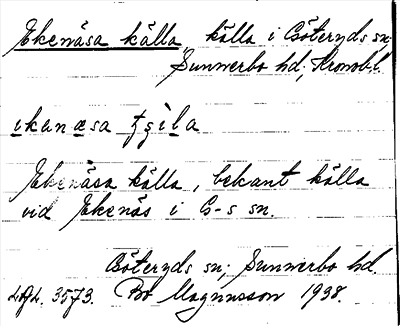 Ekenäsa källa källa i Göteryds sn;
Sunnerbo hd; Kronobl.
ikanæsa
Ekenäsa källa, bekant källa
vid Ekenäs i G-s sn.
Göteryds sn; Sunnerbo hd
3573. Bo Magnusson 1938.